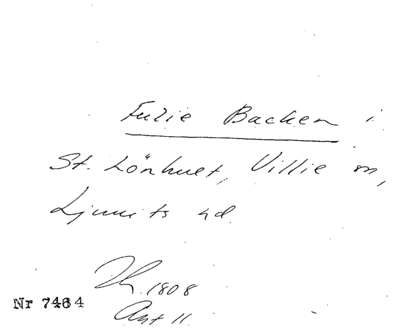 Fulie Backen i
St. Lönhult, Villie sn,
Ljunits hd.
1808
Akt 11
Nr 7464